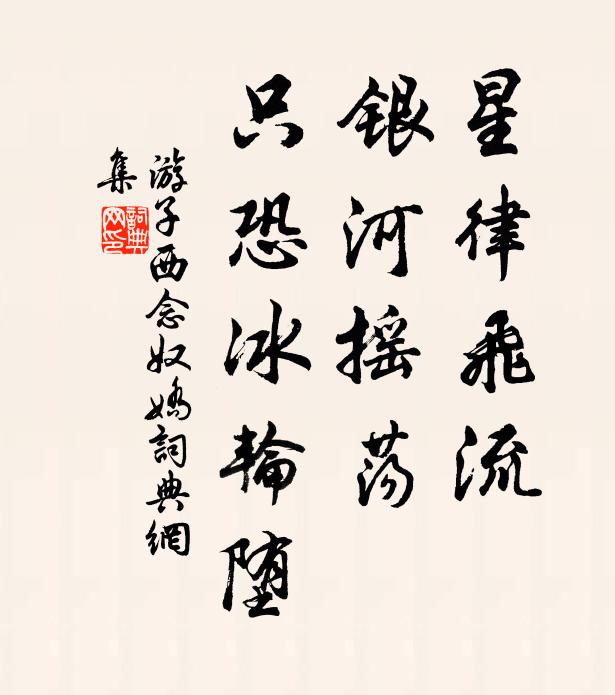 星律飛流
銀河摇荡
只恐冰輪堕
游子西念奴嬌詞典網
集
詞典
网印